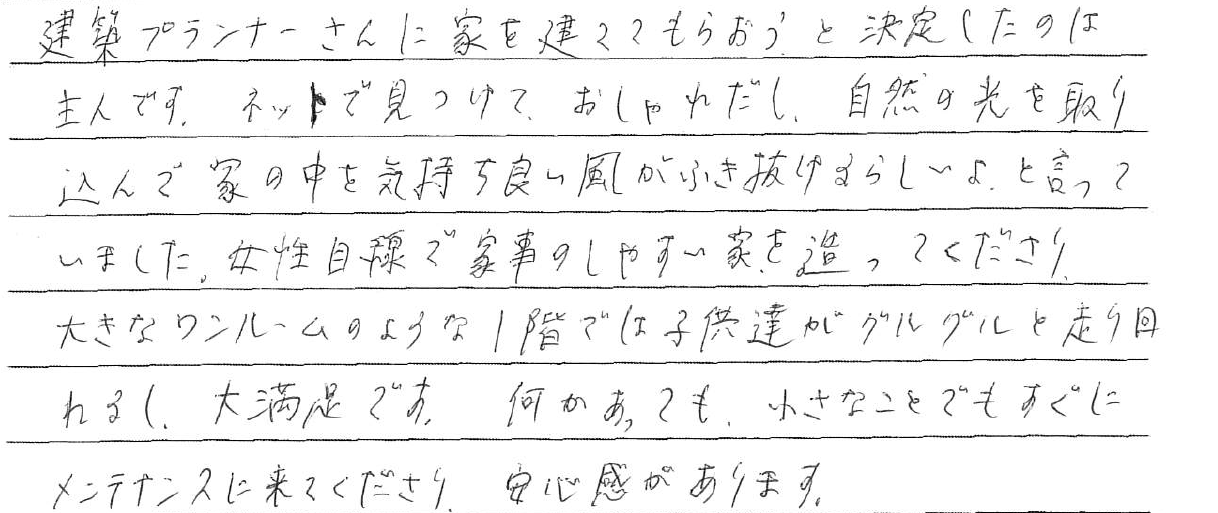 建築プランナーさんに家を建ててもらおう、と決定したのは
主人です。ネットで見つけて、おしゃれだし、自然の光を取り
込んで家の中を気持ち良い風がふき抜けるらしいよ、と言って
いました。女性目線で家事のしやすい家を造ってくださり、
大きなワンルームのような1階では子供達がグルグルと走り回
れるし、大満足です。何かあっても、小さなことでもすぐに
メンテナンスに来てくださり、安心感があります。